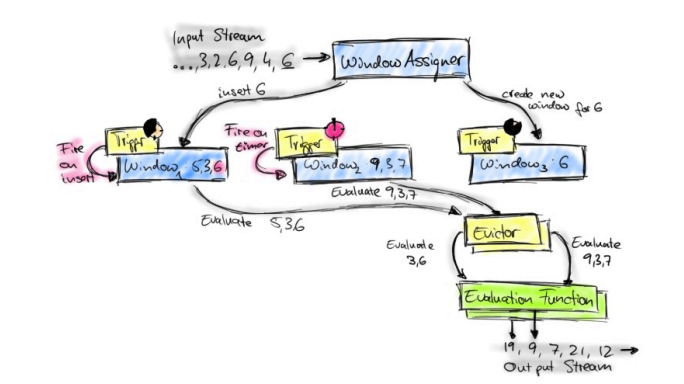 Input Stream
...,3,2,6,9,4, 6
Window Assigner
insert 6
create new
window for 6
Trigger
Fire on
timer
Trigger
Trigger
Fire
on
insert
Window1 5,3,6
Window2 9,3,7
Window3: 6
Evaluate 9,3,7
Evaluate 5,3,6
Evictor
Evaluate
3,6
Evaluate
9,3,7
Evaluation Function
19, 9, 7, 21, 12
Output Stream